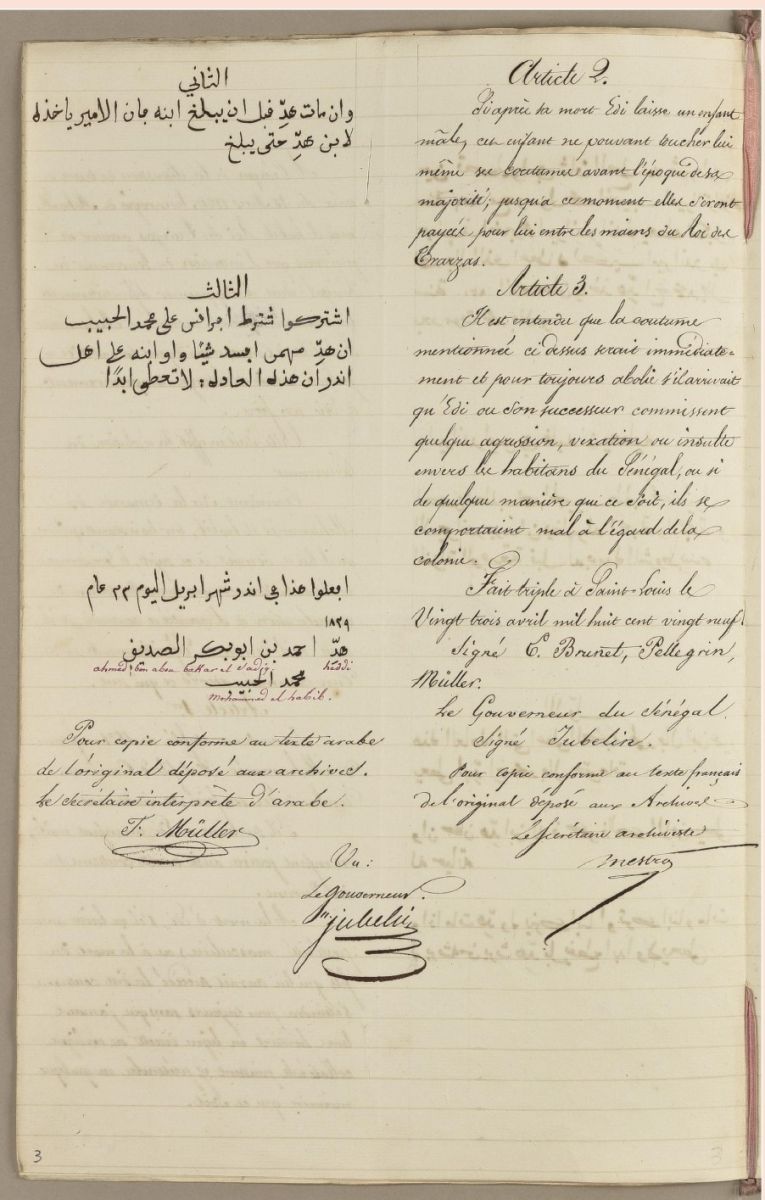 Article 2.
Si après sa mort Edi laisse un enfant
mâle, cet enfant ne pouvant toucher lui
même ses coutumes avant l'époque de sa
majorité; jusqu'à ce moment elles seront
payées pour lui entre les mains du Roi des
Trarzas.
Article 3.
Il est entendu que la coutume
mentionnée ci dessus serait immédiate-
ment et pour toujours abolie s'il arrivait
qu'Edi ou son successeur commissent
quelque agression, vexation ou insulte
envers les habitans du Sénégal, ou si
de quelque manière que ce soit, ils se
comportaient mal à l'égard de la
colonie.
Fait triple à Saint-Louis le
Vingt trois avril mil huit cent vingt neuf.
Signé E. Brunet, Pellegrin,
Müller.
Le Gouverneur du Sénégal.
Signé Jubelin.
Pour copie conforme au texte français
de l'original déposé aux Archives
Le Secrétaire archiviste
الثاني
وان مات هدِّ فبل ان يبلغ ابنه فان الامير ياخذه
لابن هدِّ حتى يبلغ
الثالث
اشتركوا شترط افرانس على محمد الحبيب
ان هدِّ مهمى افسد شيئا واو ابنه على اهل
اندر ان هذه العادة لا تعطى ابدًا
ابعلوا هذا في اندر شهر ابريل اليوم ٢٣ عام
١٨٢٩
هدّ احمد بن ابوبكر الصديق
ahmed ben abou bekar el s'adiq heddi
محمد الحبيب
mohammed el habib.
Pour copie conforme au texte arabe
de l'original déposé aux archives.
Le secrétaire interprète d'arabe.
F. Müller
Vu:
Le Gouverneur.
Jubelin
3